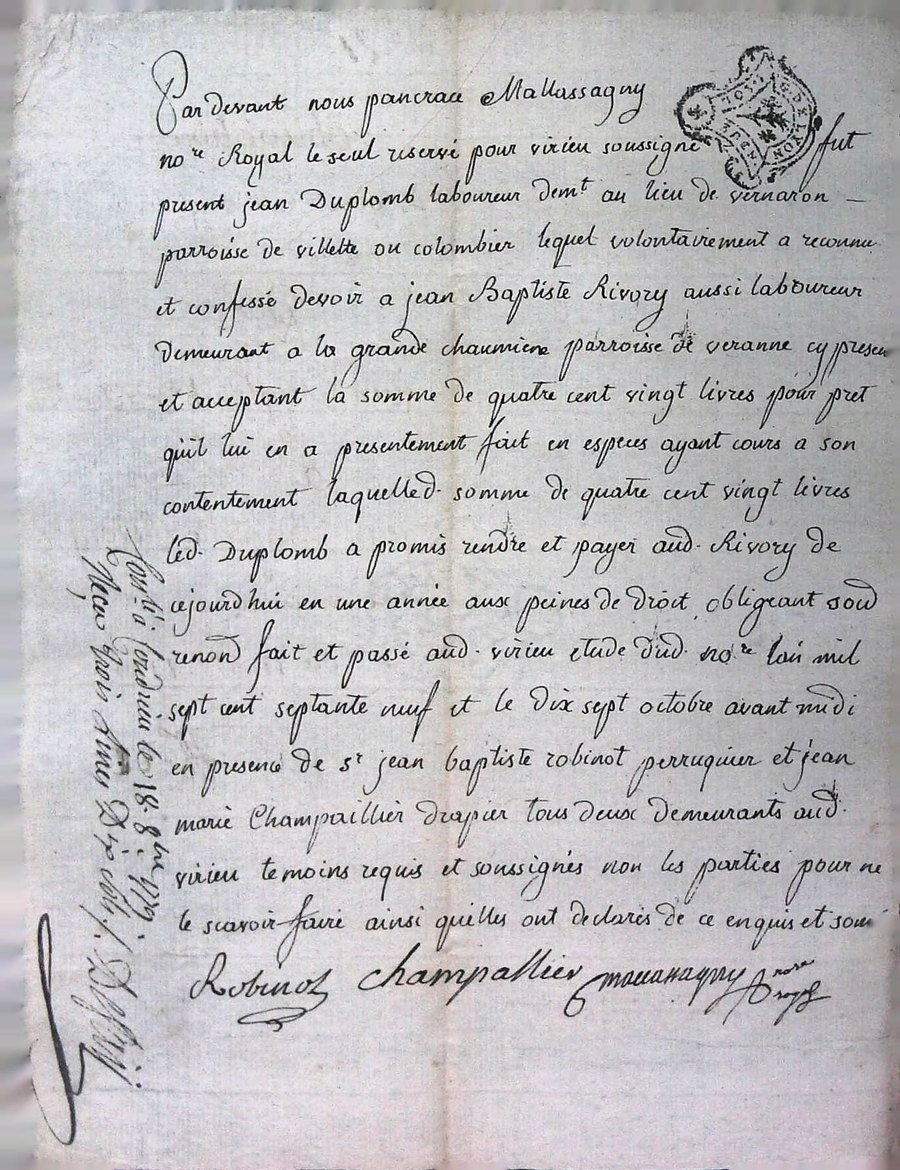 Par devant nous pancrace Mallassagny
nore Royal le seul reservé pour virieu soussigné fut
present jean Duplomb laboureur demt au lieu de vernaron
parroisse de villette ou colombier lequel volontairement a reconnu
et confessé devoir a jean Baptiste Rivory aussi laboureur
demeurant a la grande chaumiene parroisse de veranne cy presen
et acceptant la somme de quatre cent vingt livres pour pret
quil lui en a presentement fait en especes ayant cours a son
contentement laquelled. somme de quatre cent vingt livres
led. Duplomb a promis rendre et payer aud. Rivory de
cejourdhui en une année aux peines de droit obligeant soud
renond fait et passé aud. virieu etude dud. nore lan mil
sept cent septante neuf et le dix sept octobre avant midi
en presence de sr jean baptiste robinot perruquier et jean
marie Champaillier drapier tous deux demeurants aud.
virieu temoins requis et soussignés non les parties pour ne
le scavoir faire ainsi quelles ont declarés de ce enquis et som
Robinot Champallier Mallassagny nore royal
Conlé à Condrieu le 18. 8bre 1779.
Reçu trois livres Dix
G. DE LYON